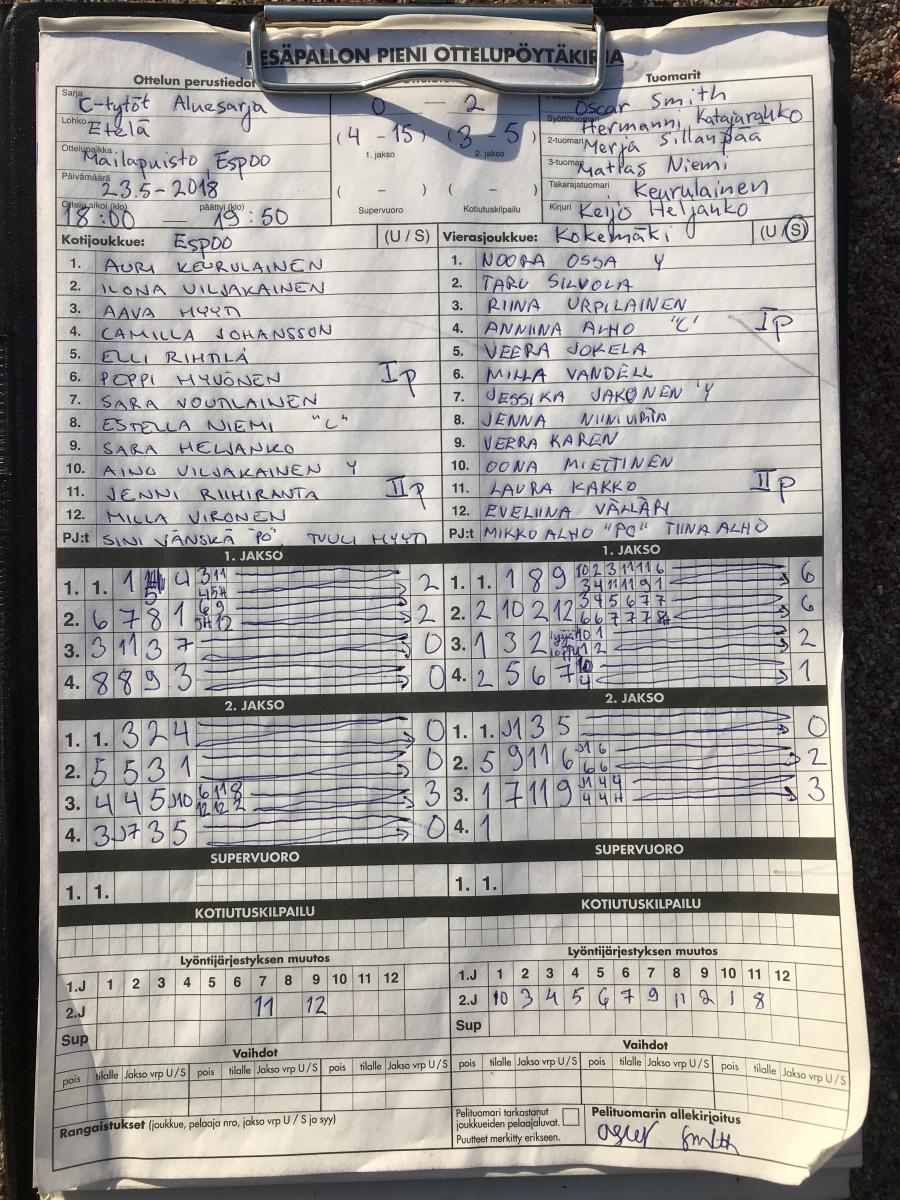 PIENI OTTELUPÖYTÄKIRJA
Ottelun perustiedot
Tuomarit
Sarja C-tytöt Aluesarja
Lohko Etelä
Ottelupaikka Mailapuisto, Espoo
Päivämäärä 23.5-2018
Ottelu alkoi (klo) 18:00 — päättyi (klo) 19:50
0 — 2
(4 - 15) (3 - 5)
1. jakso 2. jakso
( - ) ( - )
Supervuoro Kotiutuskilpailu
Oscar Smith
Syöttötuomari Hermanni Katajarakko
2-tuomari Merja Sillanpää
3-tuomari Matias Niemi
Takarajatuomari Keurulainen
Kirjuri Keijo Heljanko
Kotijoukkue: Espoo (U / S)
1. AURI KEURULAINEN
2. ILONA VILJAKAINEN
3. AAVA HYYTI
4. CAMILLA JOHANSSON
5. ELLI RIHTILÄ
6. POPPI HYVÖNEN Ip
7. SARA VOUTILAINEN
8. ESTELLA NIEMI "C"
9. SARA HELJANKO
10. AINO VILJAKAINEN Y
11. JENNI RIIHIRANTA IIp
12. MILLA VIRONEN
PJ:t SINI VÄNSKÄ "PÖ", TUULI HYYTI
Vierasjoukkue: Kokemäki (U / S)
1. NOORA OSSA Y
2. TARU SILVOLA
3. RIINA URPILAINEN
4. ANNIINA ALHO "C" Ip
5. VEERA JOKELA
6. MILLA VANDELL
7. JESSIKA JAKONEN Y
8. JENNA NIINIVIRTA
9. VEERA KAREN
10. OONA MIETTINEN
11. LAURA KAKKO IIp
12. EVELIINA
PJ:t MIKKO ALHO "PÖ" TIINA ALHO
1. JAKSO
1. 1. 1 4 3 11 2
2. 6 7 8 1 6 9 12 2
3. 3 11 3 7 0
4. 8 8 9 3 0
1. JAKSO
1. 1. 1 8 9 10 2 3 11 11 6 6
3 4 11 11 9 1
2. 2 10 2 12 3 4 5 6 7 7 6
6 6 7 7 7 8H
3. 1 3 2 10 1 2
1 2
4. 2 5 6 7 10 1
4
2. JAKSO
1. 1. 3 2 4 0
2. 5 5 3 1 0
3. 4 4 5 J10 6 11 8 3
12 12 2
4. 3 J7 3 5 0
2. JAKSO
1. 1. J1 3 5 0
2. 5 9 11 6 J1 6 2
6 6
3. 1 7 11 9 J1 4 4 3
4 4 H
4. 1
SUPERVUORO
1. 1.
SUPERVUORO
1. 1.
KOTIUTUSKILPAILU
KOTIUTUSKILPAILU
Lyöntijärjestyksen muutos
1.J 1 2 3 4 5 6 7 8 9 10 11 12
2.J 11 12
Sup
Lyöntijärjestyksen muutos
1.J 1 2 3 4 5 6 7 8 9 10 11 12
2.J 10 3 4 5 6 7 9 11 2 1 8
Sup
Vaihdot
pois tilalle Jakso vrp U / S pois tilalle Jakso vrp U / S pois tilalle Jakso vrp U / S
Vaihdot
pois tilalle Jakso vrp U / S pois tilalle Jakso vrp U / S pois tilalle Jakso vrp U / S
Rangaistukset (joukkue, pelaaja nro, jakso vrp U / S ja syy)
Pelituomari tarkastanut
joukkueiden pelaajaluvat.
Puutteet merkitty erikseen.
Pelituomarin allekirjoitus
Oscar Smith